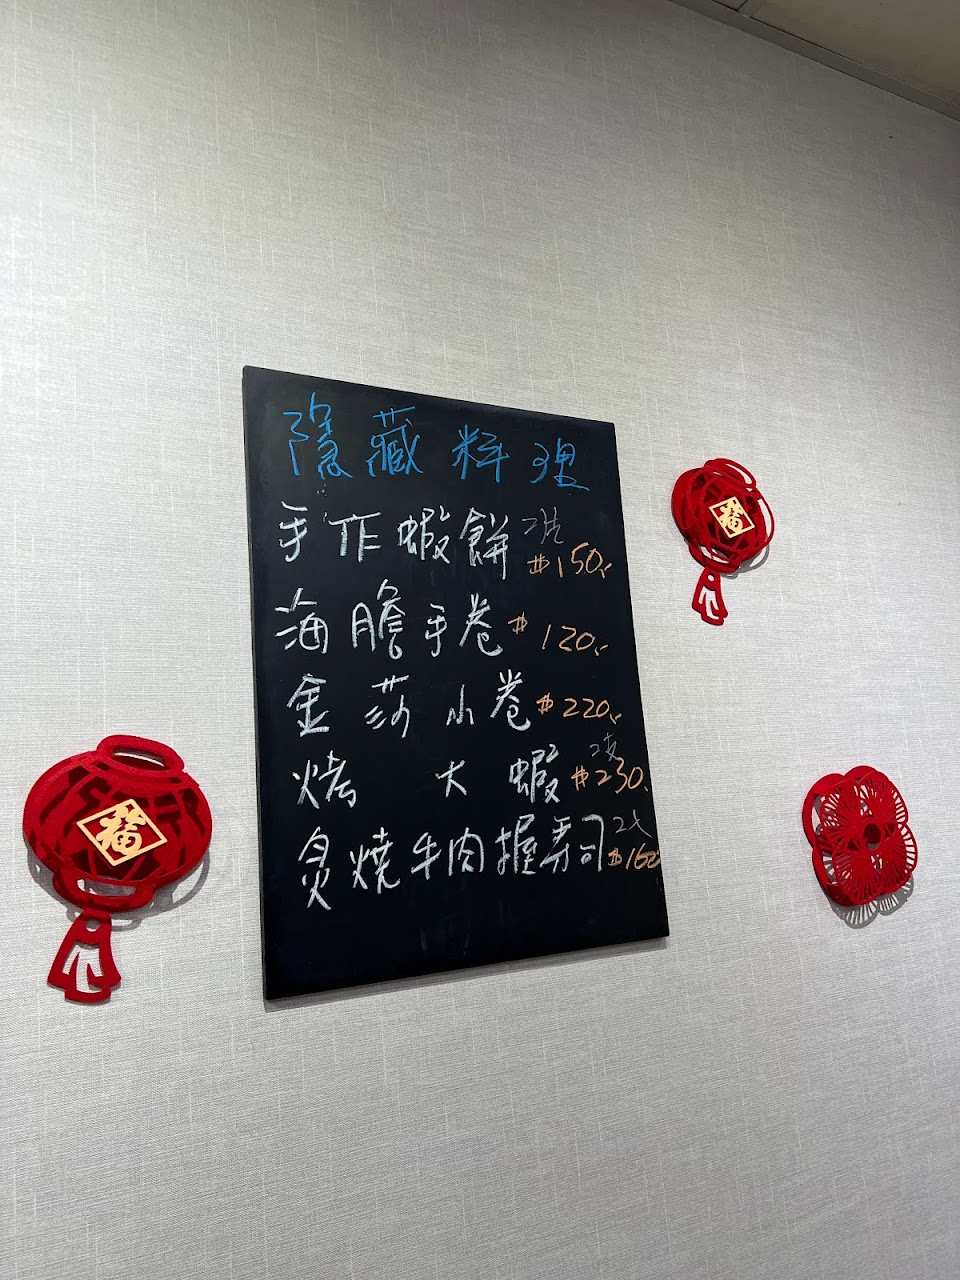 隱藏料理
手作蝦餅 2片 #150.-
海膽手卷 # 120.-
金莎小卷 #220.-
烤 大 蝦 2支 #230.
炙燒牛肉握壽司 #160
福
福